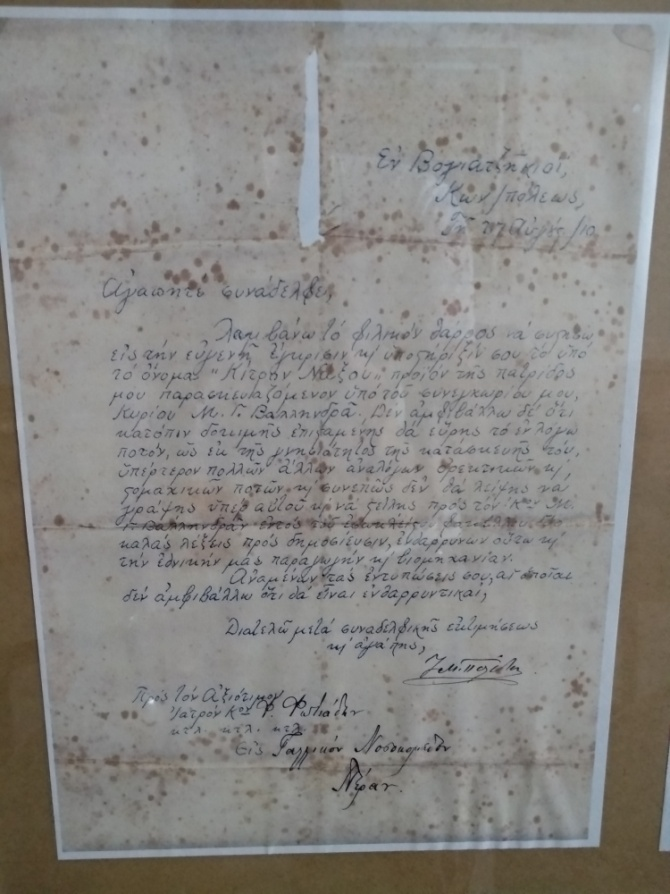 Ἐν Βογιατζῆκιοϊ,
Κων/πόλεως,
τῇ Αὐγ. /10
Ἀγαπητὲ συνάδελφε,
Λαμβάνω τὸ φιλικὸν θάρρος νὰ συστήσω
εἰς τὴν εὐγενῆ ἔγκρισιν κ̀ ὑποστήριξίν σου τὸ ὑπὸ
τὸ ὄνομα "Κίτρον Νάξου" προϊὸν τῆς πατρίδος
μου παρασκευαζόμενον ὑπὸ τοῦ συνεγχωρίου μου,
Κυρίου Μ. Γ. Βαλληνδρᾶ. Δὲν ἀμφιβάλλω δὲ ὅτι
κατόπιν δοκιμῆς ἐπισταμένης θὰ εὕρῃς τὸ ἐν λόγῳ
ποτόν, ὡς ἐκ τῆς γνησιότητος τῆς κατασκευῆς του,
ὑπέρτερον πολλῶν ἄλλων ἀναλόγων ὀρεκτικῶν κ̀
στομαχικῶν ποτῶν κ̀ συνεπῶς δὲν θὰ λείψῃς νὰ
γράψῃς ὑπὲρ αὐτοῦ κ̀ νὰ στείλῃς πρὸς τὸν Κον Μ.
Γ. Βαλληνδρᾶν ἐντὸς τοῦ
καλὰς λέξεις πρὸς δημοσίευσιν, ἐνθαρρύνων οὕτω κ̀
τὴν ἐθνικήν μας παραγωγὴν κ̀ βιομηχανίαν.
Ἀναμένων τὰς ἐντυπώσεις σου, αἱ ὁποῖαι
δὲν ἀμφιβάλλω ὅτι θὰ εἶναι ἐνθαρρυντικαί,
Διατελῶ μετὰ συναδελφικῆς ἐκτιμήσεως
κ̀ ἀγάπης,
Πρὸς τὸν Ἀξιότιμον
Ἰατρὸν Κον Φ. Φωτιάδην
κτλ. κτλ. κτλ.
Εἰς Γαλλικὸν Νοσοκομεῖον
Πέραν.